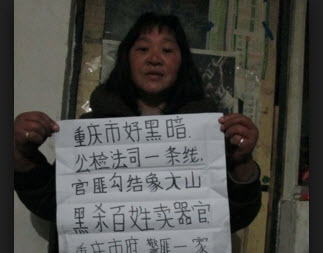 重庆市好黑暗.
公检法司一条线.
官匪勾结象大山
黑杀百姓卖器官
重庆市府警匪一家